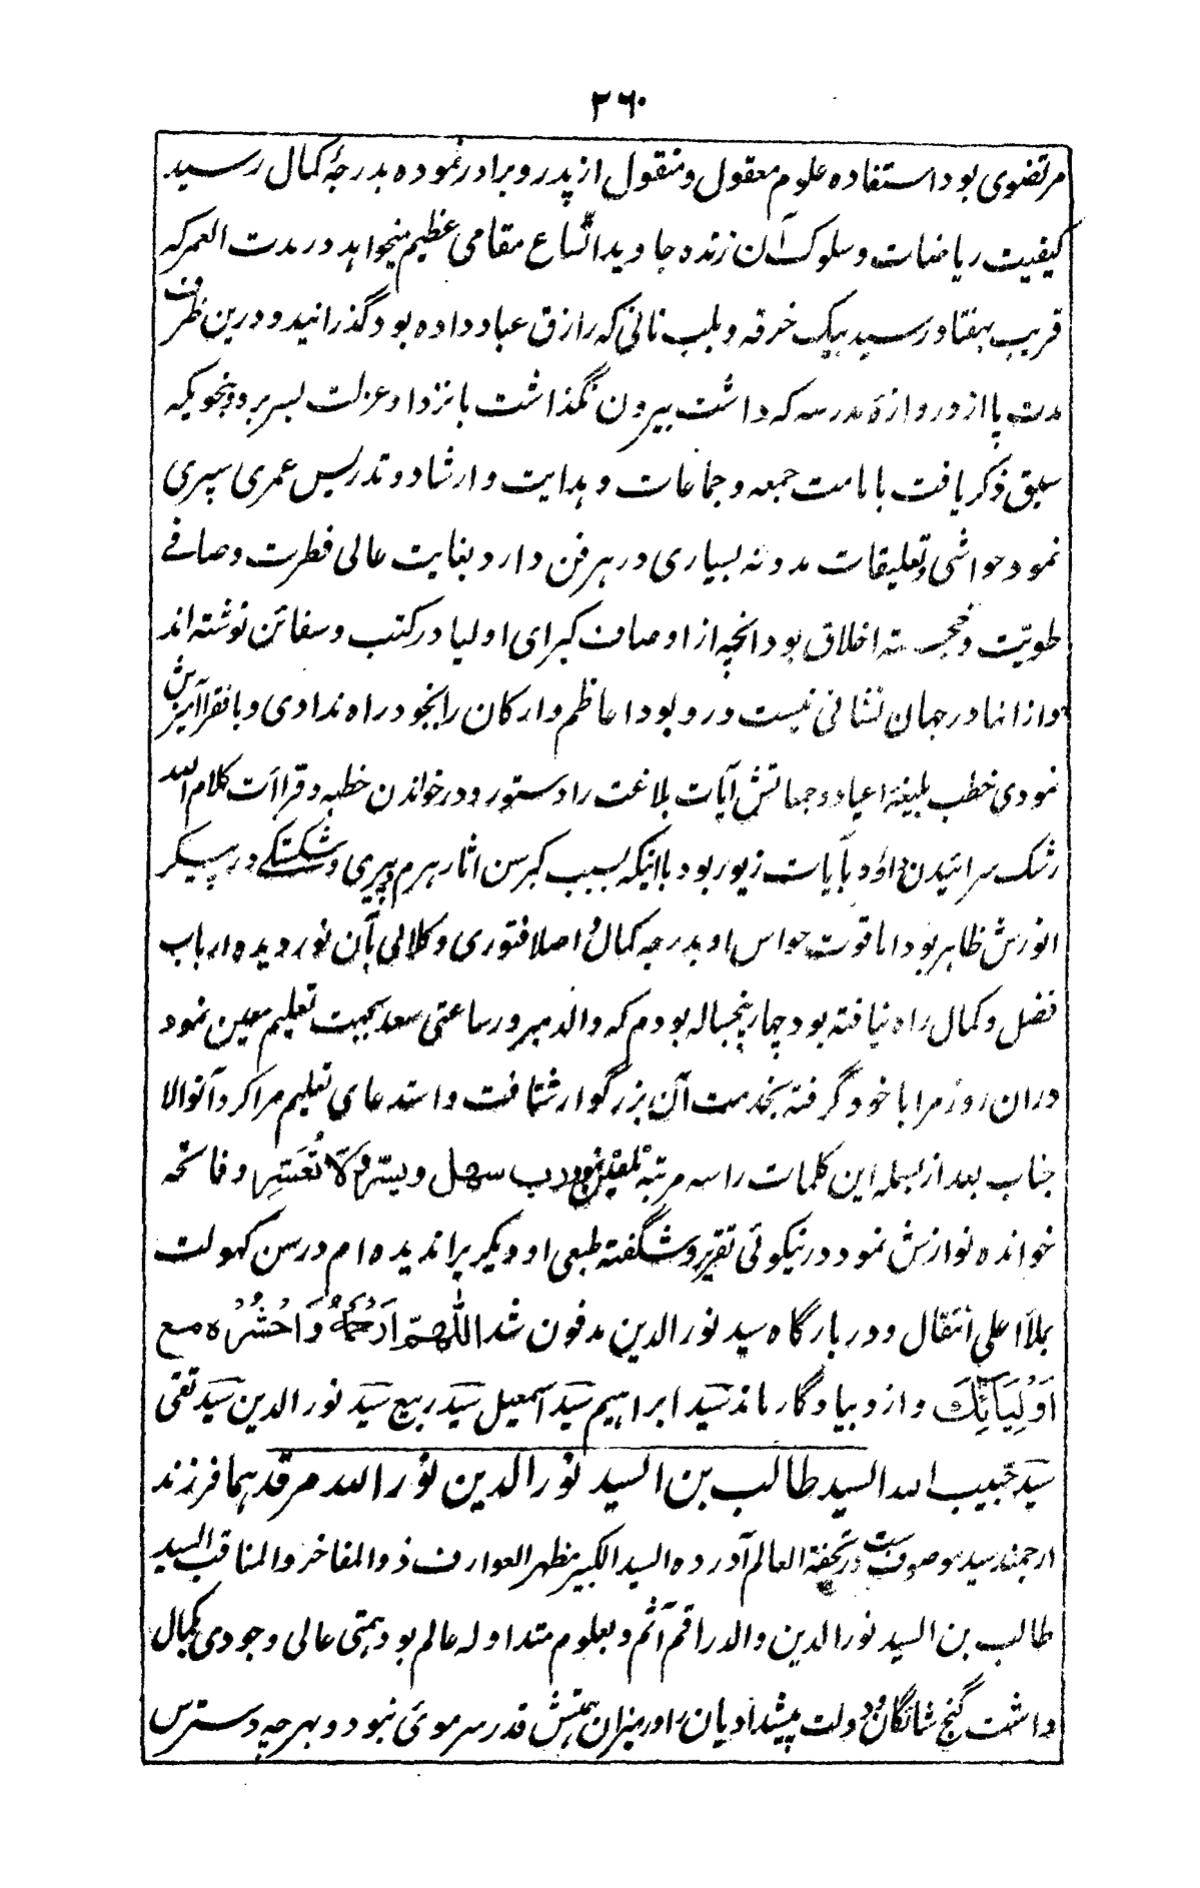 ۲۶۰
مرتضوی بود استفاده علوم معقول و منقول از پدر و برادر نموده بدرجۀ کمال رسید
کیفیت ریاضات و سلوک آن زنده جاوید اتساع مقامی عظیم میخواهد در مدت العمر که
قریب بهفتاد رسید بیک خرقه و بلب نانی که رازق عباد داده بود گذرانید و درین ظرف
مدت پا از دروازۀ مدرسه که داشت بیرون نگذاشت بانزوا و عزلت بسر برد و بنحویکه
سبق ذکر یافت بامامت جمعه و جماعات و هدایت و ارشاد و تدریس عمری سپری
نمود حواشی و تعلیقات مدونه بسیاری در هر فن دارد بغایت عالی فطرت و صافی
طویّت و خجسته اخلاق بود انچه از اوصاف کبرای اولیا در کتب و سفائن نوشته اند
و از انها در جهان نشانی نیست درو بود اعاظم و ارکان را بخود راه ندادی و با فقرا آمیزش
نمودی خطب بلیغۀ اعیاد و جمعاتش آیات بلاغت را دستور و در خواندن خطبه و قراات کلام الله
رشک سرائیدن داؤد بآیات زبور بود با اینکه بسبب کبر سن اثار هرم و پیری و شکستگی در پیکر
انورش ظاهر بود اما قوت حواس او بدرجه کمال و اصلا فتوری و کلالی بآن نور دیده ارباب
فضل و کمال راه نیافته بود چهار پنجساله بودم که والد مبرور ساعتی سعد بجهت تعلیم معین نمود
دران روز مرا با خود گرفته بخدمت آن بزرگوار شتافت و استدعای تعلیم مرا کرد و آنوالا
جناب بعد از بسمله این کلمات را سه مرتبه تلقین نمود رب سهل و یسّر وَلَا تُعَسِّر و فاتحه
خوانده نوازش نمود در نیکوئی تقریر و شگفته طبعی او دیگر پرا ندیده ام در سن کهولت
بملأ اعلی انتقال و در بارگاه سید نور الدین مدفون شد اللّٰهمّ ارْحَمْهُ وَاحْشُرْه مع
اَوْلِیَائِکَ و ازو بیادگار ماند سَیّد ابراهیم سَیّد اسمعیل سَیّد ربیع سَیّد نور الدین سَیّد تقی
سَیّد حبیب الله السید طالب بن السید نور الدین نور الله مرقدهما فرزند
ارجمند سید موصوفست در تحفة العالم آورده السید الکبیر مظهر العوارف ذو المفاخر والمناقب السید
طالب بن السید نور الدین والد راقم آثم و بعلوم متداوله عالم بود همتی عالی وجودی بکمال
داشت گنج شائگان و دولت پیشدادیان را در میزان همتش قدر سر موئی نبود و بهرچه دسترس